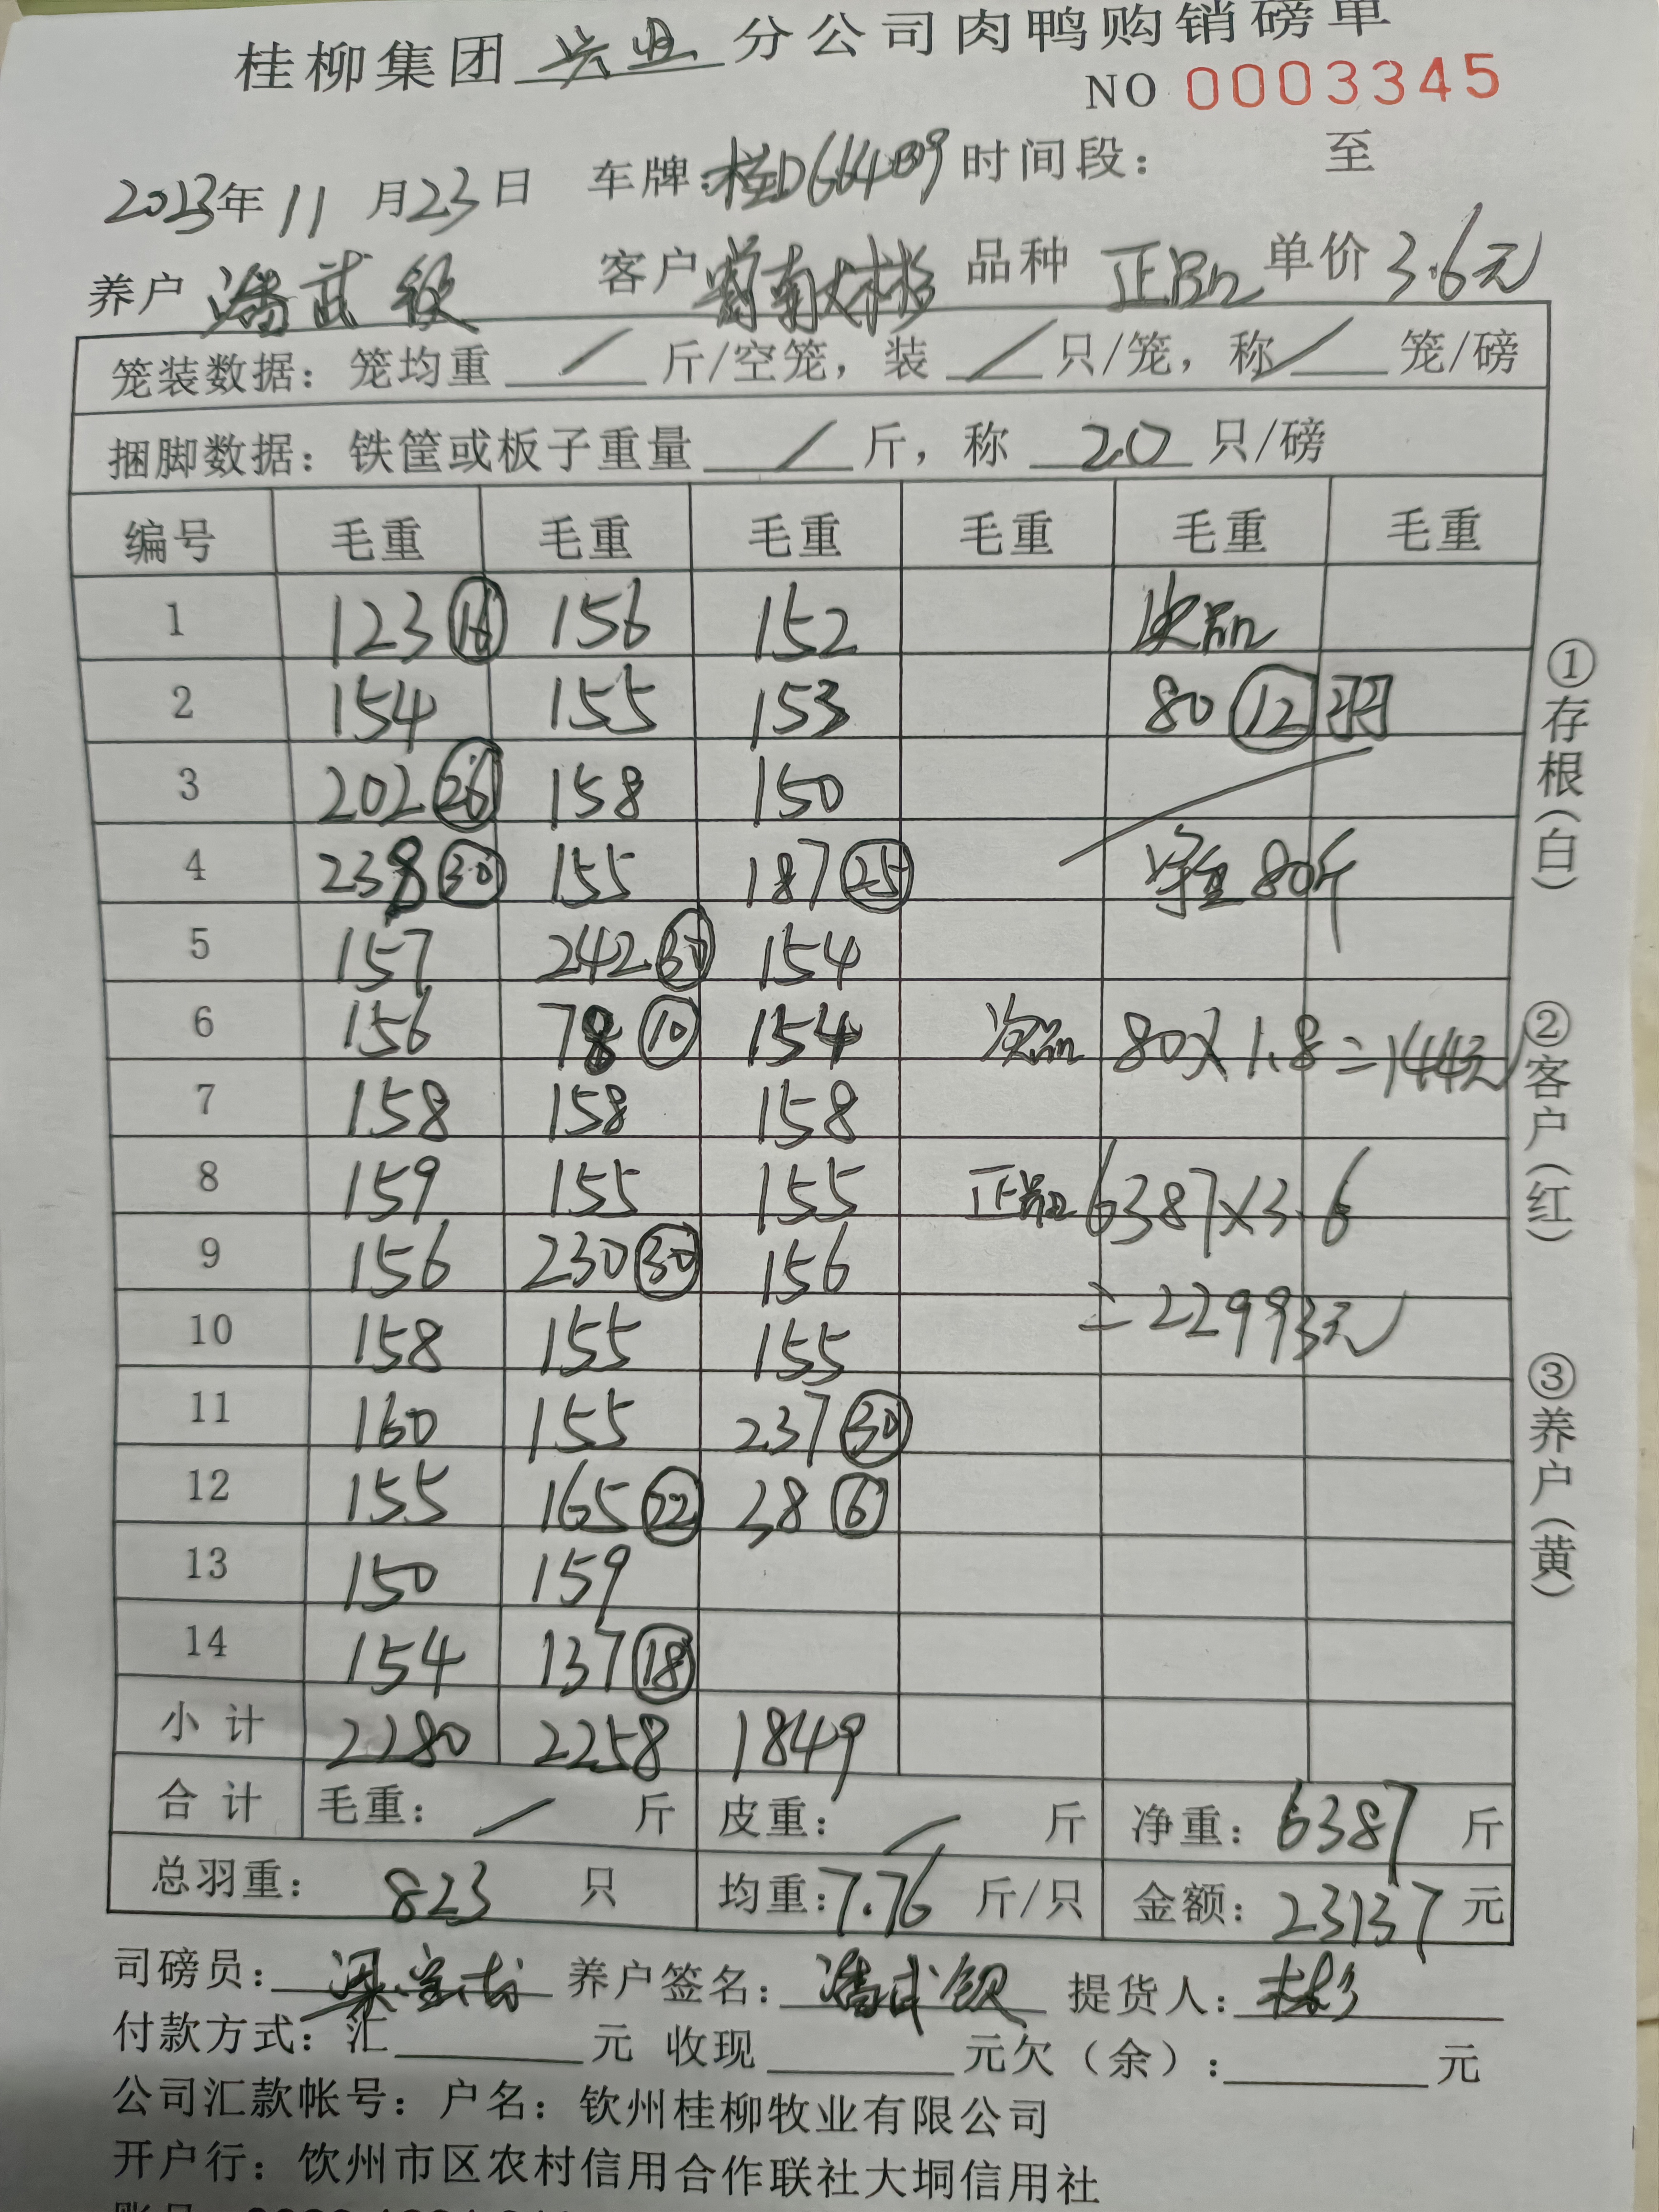 桂柳集团 兴业 分公司肉鸭购销磅单
NO 0003345
2023年11月23日 车牌: 时间段: 至
养户 潘武钦 客户 品种 正品 单价 3.6元
笼装数据: 笼均重 / 斤/空笼, 装 / 只/笼, 称 / 笼/磅
捆脚数据: 铁筐或板子重量 / 斤, 称 20 只/磅
编号 毛重 毛重 毛重 毛重 毛重 毛重
1 123 16 156 152 次品
2 154 155 153 80 12 羽
3 202 26 158 150
4 238 30 155 187 25 净重80斤
5 157 242 30 154
6 156 78 10 154 次品 80×1.8=144元
7 158 158 158
8 159 155 155 正品 6387×3.6
9 156 230 30 156 =22993元
10 158 155 155
11 160 155 237 30
12 155 165 22 38 6
13 150 159
14 154 137 18
小计 2280 2258 1849
合计 毛重: / 斤 皮重: / 斤 净重: 6387 斤
总羽重: 823 只 均重: 7.76 斤/只 金额: 23137 元
司磅员: 养户签名: 潘武钦 提货人: 林彬
付款方式: 汇 元 收现 元欠(余): 元
公司汇款帐号: 户名: 钦州桂柳牧业有限公司
开户行: 钦州市区农村信用合作联社大垌信用社
①存根(白)
②客户(红)
③养户(黄)